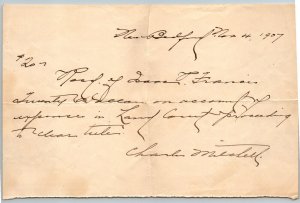 New Bedford Nov 4, 1907
$20-
Recd. of Isaac L. Francis
Twenty Dollars on account of
expense in Land Court proceeding
to clear title
Charles Mitchell